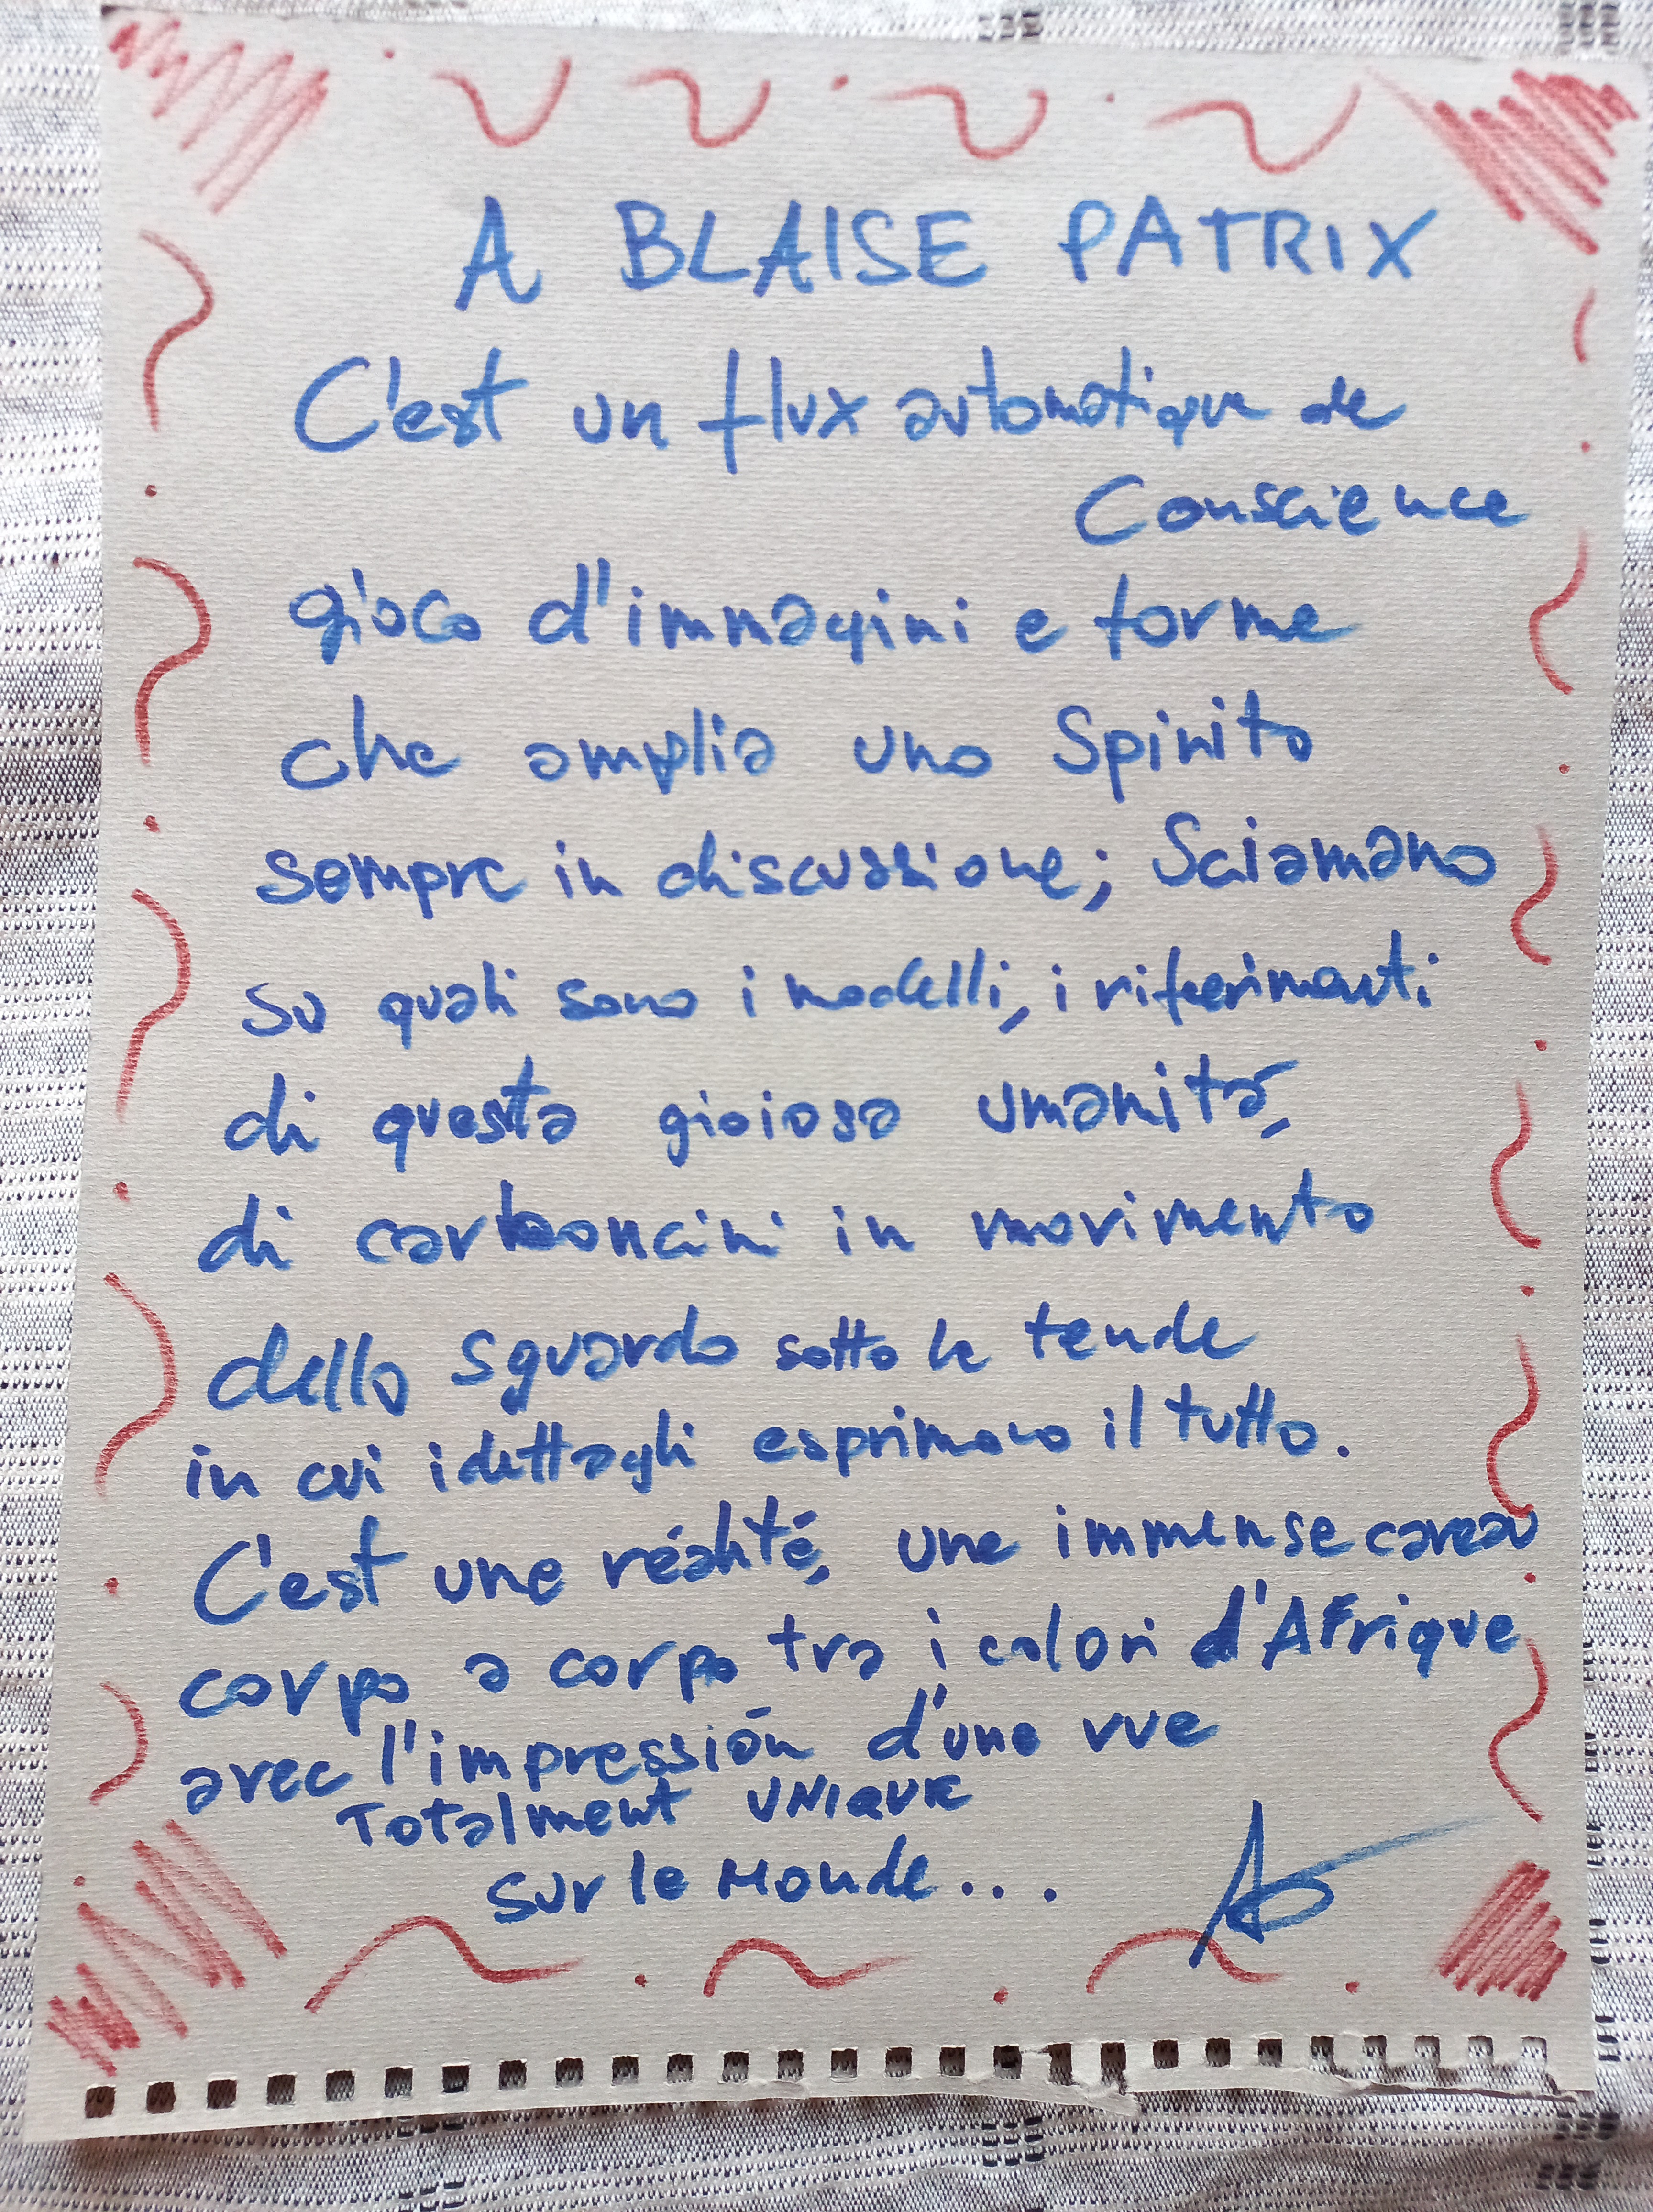 A BLAISE PATRIX
C'est un flux automatique de
Conscience
gioco d'immagini e forme
che amplia uno Spirito
sempre in discussione; Sciamano
su quali sono i modelli, i riferimenti
di questa gioiosa umanità,
di carboncini in movimento
dello sguardo sotto le tende
in cui i dettagli esprimono il tutto.
C'est une réalité, une immense
corpo a corpo tra i colori d'AFrique
avec l'impression d'une vue
Totalment UNIQUE
sur le Monde...